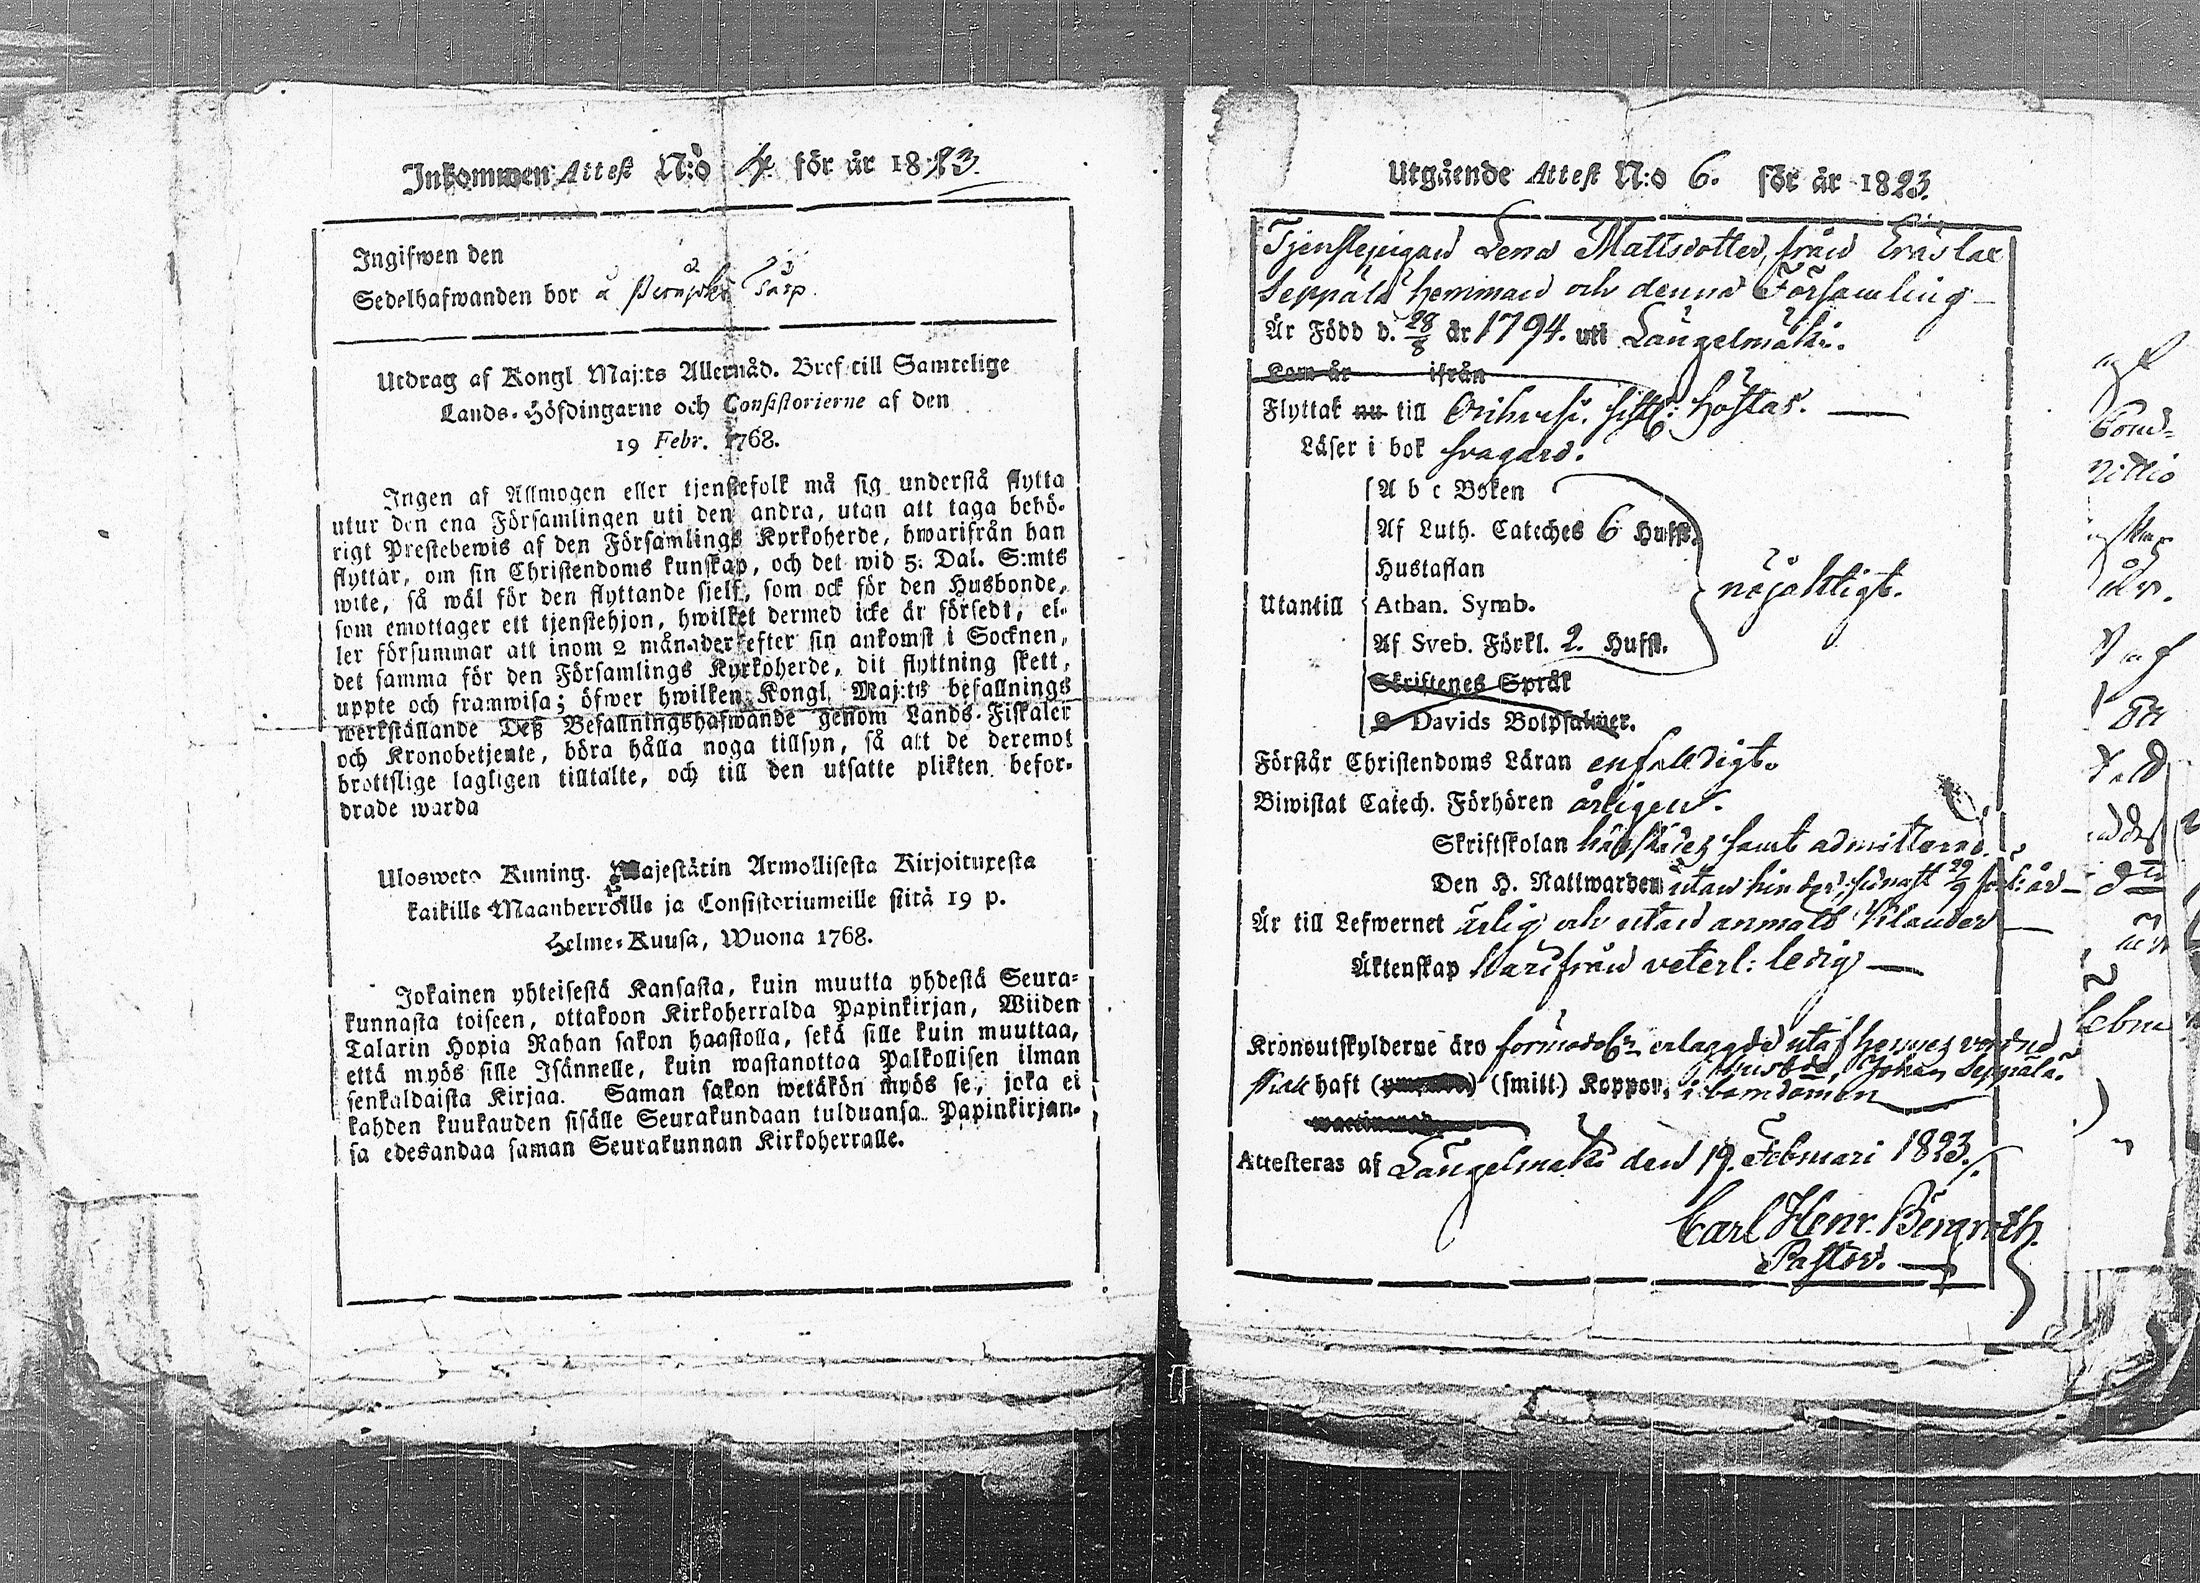 Inkommen Attest N:o 4. för år 1823.
Ingifwen den
Sedelhafwanden bor å
Utdrag af Kongl Maj:ts Allernåd. Bref till Samtelige
Lands-Höfdingarne och Consistorierne af den
19 Febr. 1768.
Ingen af Allmogen eller tjenstefolk må sig understå flytta
utur den ena Församlingen uti den andra, utan att taga behö-
rigt Prestebewis af den Församlings Kyrkoherde, hwarifrån han
flyttar, om sin Christendoms kunskap, och det wid 5: Dal. S:mts
wite, så wäl för den flyttande sielf, som ock för den Husbonde,
som emottager ett tjenstehjon, hwilket dermed icke är försedt, el-
ler försummar att inom 2 månader efter sin ankomst i Socknen,
det samma för den Församlings Kyrkoherde, dit flyttning skett,
uppte och framwisa; öfwer hwilken Kongl. Maj:ts befallnings
werkställande Deß Befallningshafwande genom Lands-Fiskaler
och Kronobetjente, böra hålla noga tillsyn, så att de deremot
brottslige lagligen tilltalte, och till den utsatte plikten befor-
drade warda
Ulosweto Kuning. Majestätin Armollisesta Kirjoituxesta
kaikille Maanherroille ja Consistoriumeille siitä 19 p.
Helme-Kuusa, Wuona 1768.
Jokainen yhteisestä Kansasta, kuin muutta yhdestä Seura-
kunnasta toiseen, ottakoon Kirkoherralda Papinkirjan, Wiiden
Talarin Hopia Rahan sakon haastolla, sekä sille kuin muuttaa,
että myös sille Isännelle, kuin wastanottaa Palkollisen ilman
senkaldaista Kirjaa. Saman sakon wetäkön myös se, joka ei
kahden kuukauden sisälle Seurakundaan tulduansa Papinkirjan-
sa edesandaa saman Seurakunnan Kirkoherralle.
Utgående Attest N:o 6. för år 1823.
Tjenstepigan Lena Mattsdotter, från Eräslax
Seppälä hemman och denna Församling
Är Född d. 28/8 år 1794. uti Längelmäki.
Kom år ifrån
Flyttat nu till Orihvesi sistl: Höstas.
Läser i bok svagare.
A b c Boken
Af Luth. Cateches 6 Hufst.
Hustaflan
nöjaktigt.
Utantill Athan. Symb.
Af Sveb. Förkl. 2. Hufst.
Skriftenes Språk
Davids Botpsalmer.
Förstår Christendoms Läran enfaldigt.
Biwistat Catech. Förhören årligen.
Skriftskolan samt admitterad.
Den H. Nattwarden utan hinder, senast 29/9
Är till Lefwernet ärlig och utan anmält
Äktenskap härifrån veterl: ledig
Kronoutskylderne äro erlagde utaf hennes
husbde Johan Seppälä.
haft (smitt.) Koppor, i barndomen
Attesteras af Längelmäki den 19. Februari 1823.
Carl Henr. Bergroth.
Pastor.